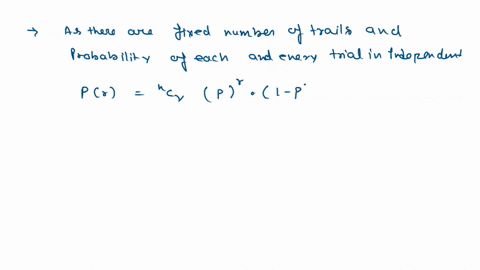 → As there are fixed number of trails and
Probability of each and every trial in Independent
P(r) = ⁿCᵣ (P)ʳ • (1-P